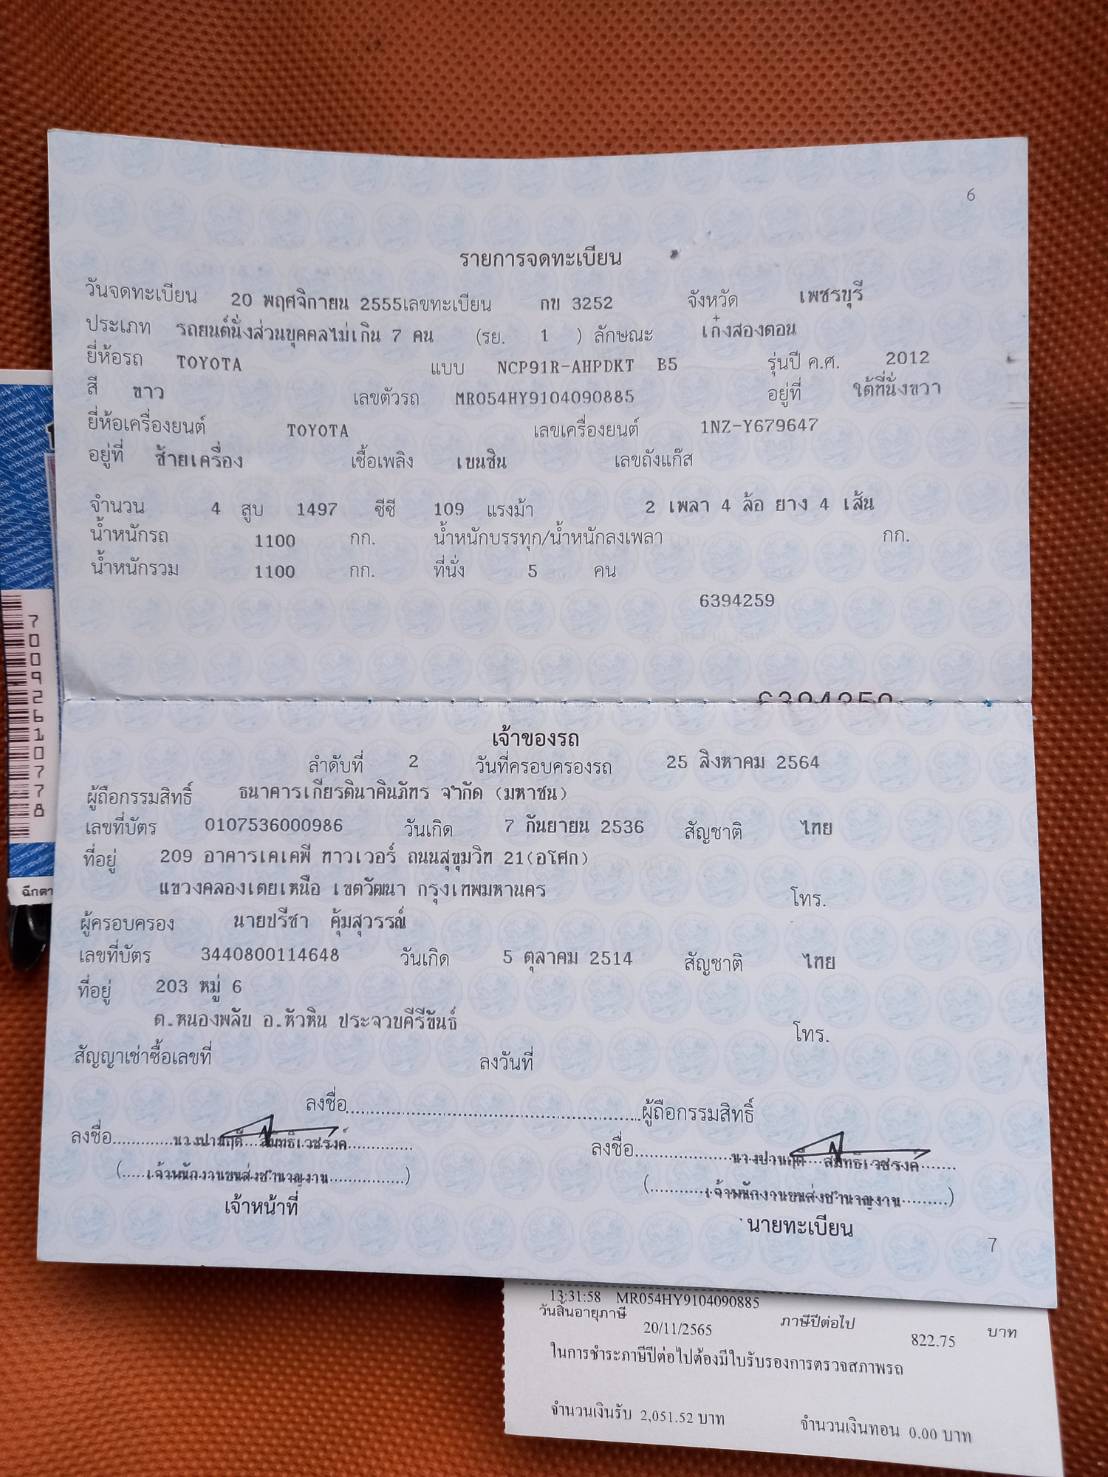 6
รายการจดทะเบียน
วันจดทะเบียน 20 พฤศจิกายน 2555 เลขทะเบียน กข 3252 จังหวัด เพชรบุรี
ประเภท รถยนต์นั่งส่วนบุคคลไม่เกิน 7 คน (รย. 1 ) ลักษณะ เก๋งสองตอน
ยี่ห้อรถ TOYOTA แบบ NCP91R-AHPDKT B5 รุ่นปี ค.ศ. 2012
สี ขาว เลขตัวรถ MR054HY9104090885 อยู่ที่ ใต้ที่นั่งขวา
ยี่ห้อเครื่องยนต์ TOYOTA เลขเครื่องยนต์ 1NZ-Y679647
อยู่ที่ ซ้ายเครื่อง เชื้อเพลิง เบนซิน เลขถังแก๊ส
จำนวน 4 สูบ 1497 ซีซี 109 แรงม้า 2 เพลา 4 ล้อ ยาง 4 เส้น
น้ำหนักรถ 1100 กก. น้ำหนักบรรทุก/น้ำหนักลงเพลา กก.
น้ำหนักรวม 1100 กก. ที่นั่ง 5 คน
6394259
70092610778
ฉีกตา
เจ้าของรถ
ลำดับที่ 2 วันที่ครอบครองรถ 25 สิงหาคม 2564
ผู้ถือกรรมสิทธิ์ ธนาคารเกียรตินาคินภัทร จำกัด (มหาชน)
เลขที่บัตร 0107536000986 วันเกิด 7 กันยายน 2536 สัญชาติ ไทย
ที่อยู่ 209 อาคารเคเคพี ทาวเวอร์ ถนนสุขุมวิท 21(อโศก)
แขวงคลองเตยเหนือ เขตวัฒนา กรุงเทพมหานคร โทร.
ผู้ครอบครอง นายปรีชา คุ้มสุวรรณ์
เลขที่บัตร 3440800114648 วันเกิด 5 ตุลาคม 2514 สัญชาติ ไทย
ที่อยู่ 203 หมู่ 6
ต.หนองพลับ อ.หัวหิน ประจวบคีรีขันธ์ โทร.
สัญญาเช่าซื้อเลขที่ ลงวันที่
ลงชื่อ..............................ผู้ถือกรรมสิทธิ์
ลงชื่อ............ ลงชื่อ............
(....เจ้าพนักงานขนส่งชำนาญงาน............) (........เจ้าพนักงานขนส่งชำนาญงาน........)
เจ้าหน้าที่ นายทะเบียน
7
13:31:58 MR054HY9104090885
วันสิ้นอายุภาษี 20/11/2565 ภาษีปีต่อไป 822.75 บาท
ในการชำระภาษีปีต่อไปต้องมีใบรับรองการตรวจสภาพรถ
จำนวนเงินรับ 2,051.52 บาท จำนวนเงินทอน 0.00 บาท